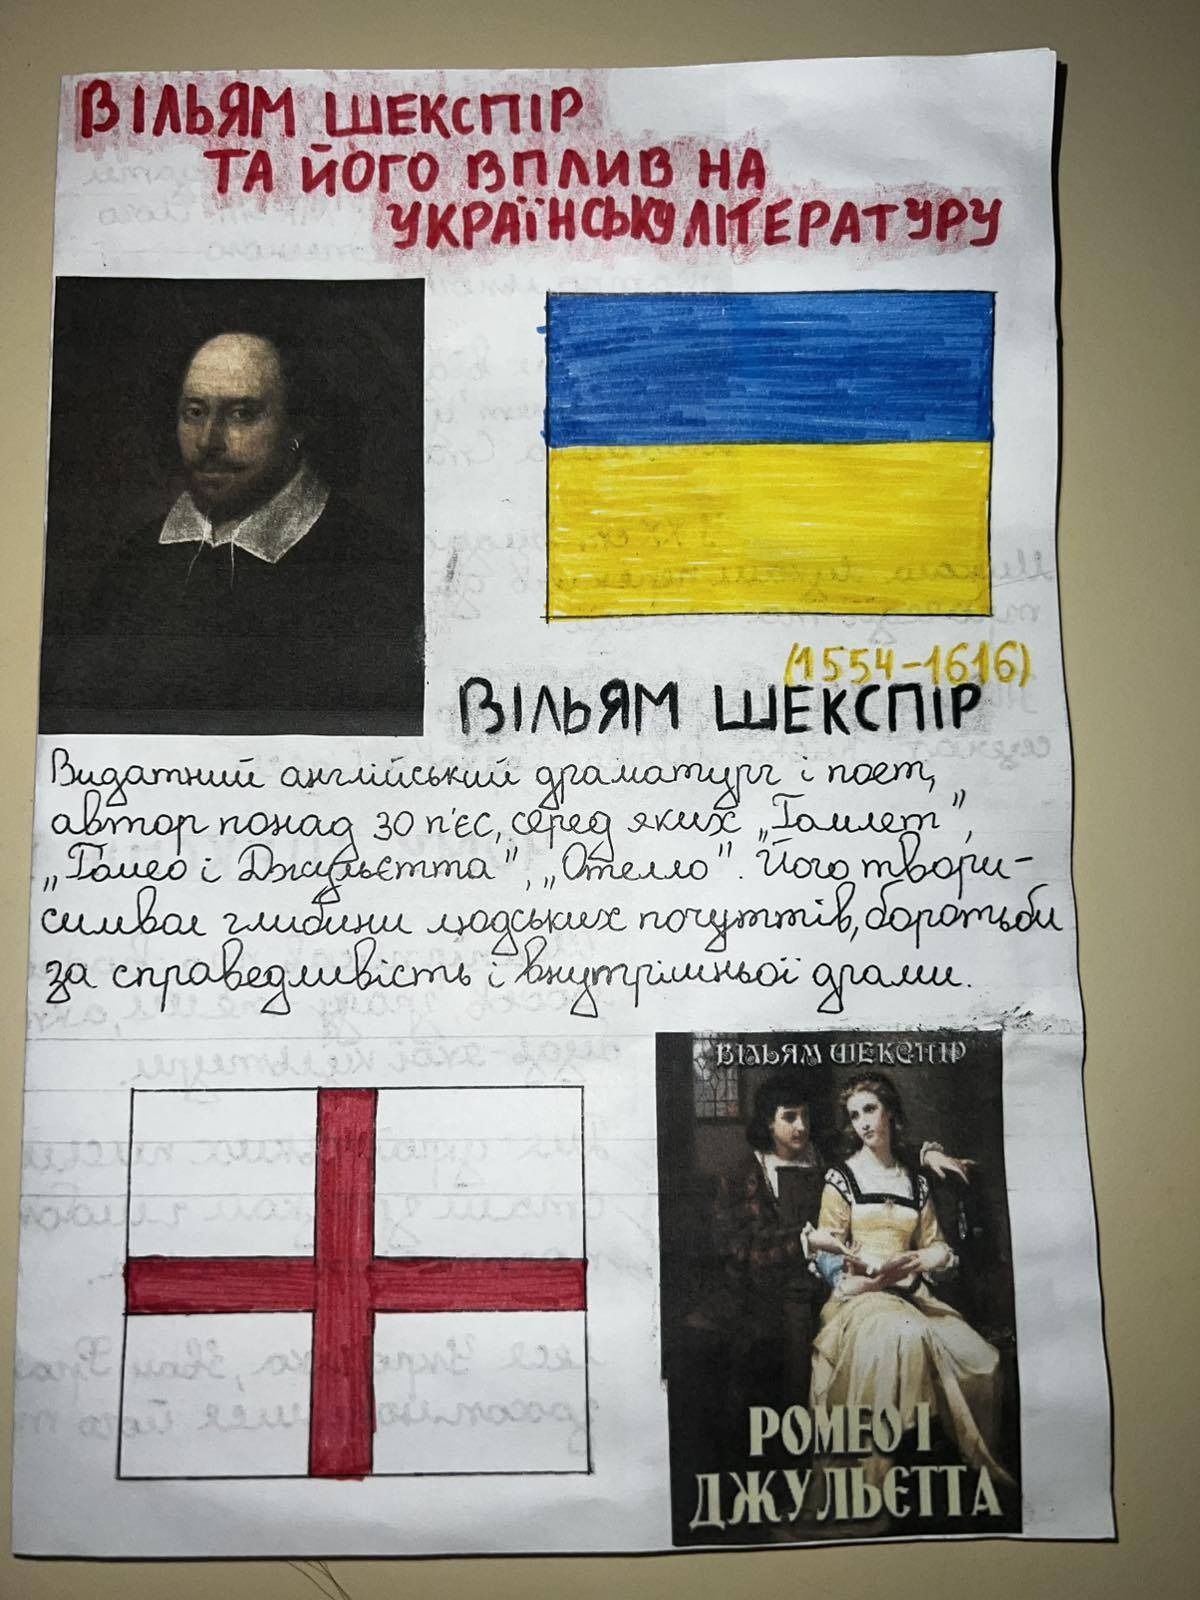 ВІЛЬЯМ ШЕКСПІР
ТА ЙОГО ВПЛИВ НА
УКРАЇНСЬКУ ЛІТЕРАТУРУ
(1554-1616)
ВІЛЬЯМ ШЕКСПІР
Видатний англійський драматург і поет,
автор понад 30 п'єс, серед яких „Гамлет",
„Гомео і Джульєтта", „Отелло". Його твори-
символ глибини людських почуттів, боротьби
за справедливість і внутрішньої драми.
ВІЛЬЯМ ШЕКСПІР
РОМЕО І
ДЖУЛЬЄТТА